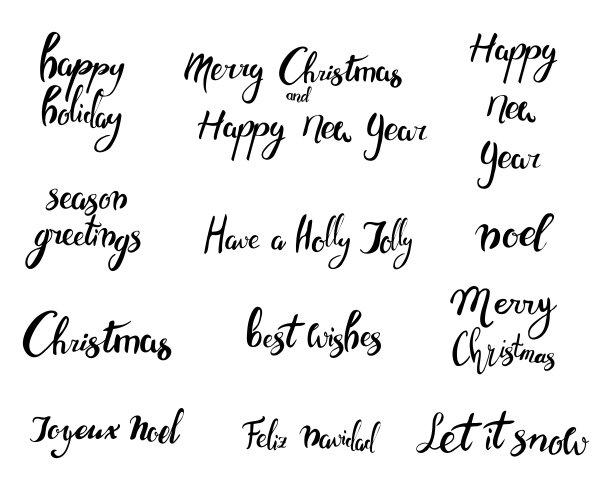 happy
holiday
Merry Christmas
and
Happy New Year
Happy
New
Year
season
greetings
Have a Holly Jolly
noel
Christmas
best wishes
Merry
Christmas
Joyeux Noel
Feliz Navidad
Let it snow